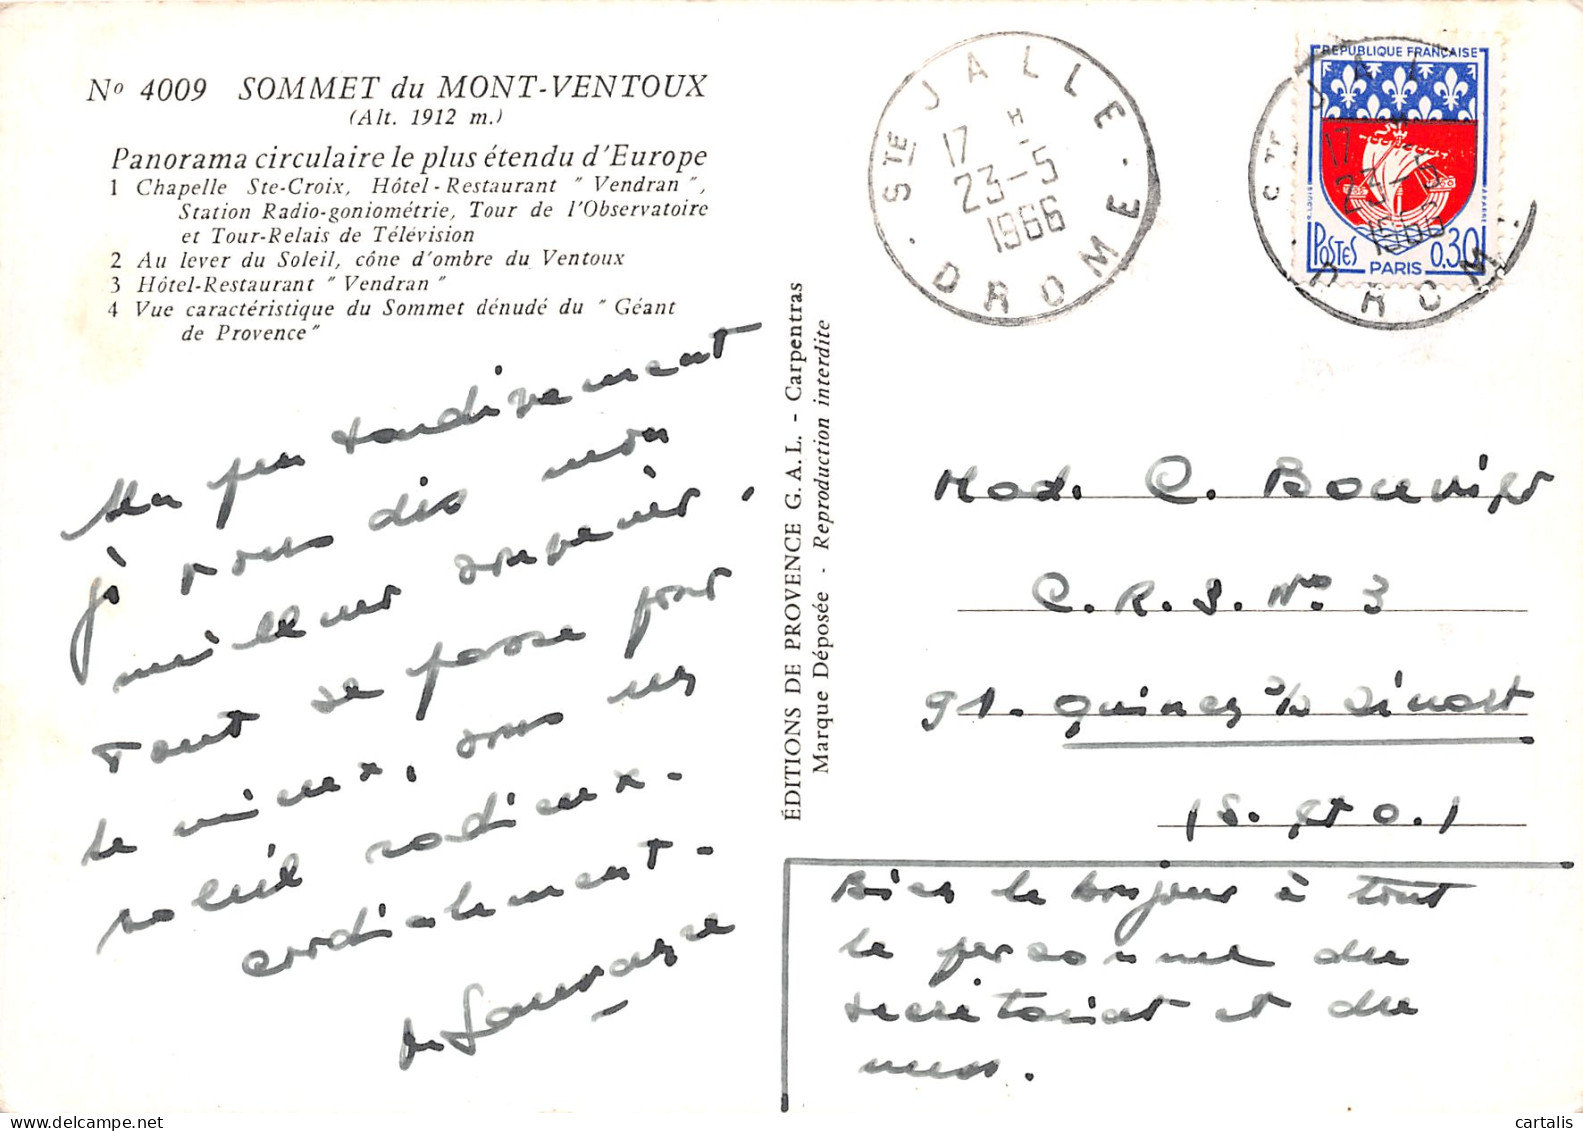 Nº 4009 SOMMET du MONT-VENTOUX
(Alt. 1912 m.)
Panorama circulaire le plus étendu d'Europe
1 Chapelle Ste-Croix, Hôtel-Restaurant " Vendran ",
Station Radio-goniométrie, Tour de l'Observatoire
et Tour-Relais de Télévision
2 Au lever du Soleil, cône d'ombre du Ventoux
3 Hôtel-Restaurant " Vendran "
4 Vue caractéristique du Sommet dénudé du " Géant
de Provence"
Un peu tardivement
je vous dis mon
meilleur souvenir.
Tout se passe pour
le mieux, sous un
soleil radieux.
cordialement.
ÉDITIONS DE PROVENCE G.A.L. - Carpentras
Marque Déposée - Reproduction interdite
STE JALLE
17 H
23-5
1966
DROME
REPUBLIQUE FRANÇAISE
POSTES
0,30
PARIS
17
23-5
1966
DROME
Mad. C. Bouvier
C.R.S. Nº 3
91. Quincy s/s Sénart
(S. et O.)
Bien le bonjour à tout
le personnel du
secrétariat et du
mess.
cartalis
www.delcampe.net